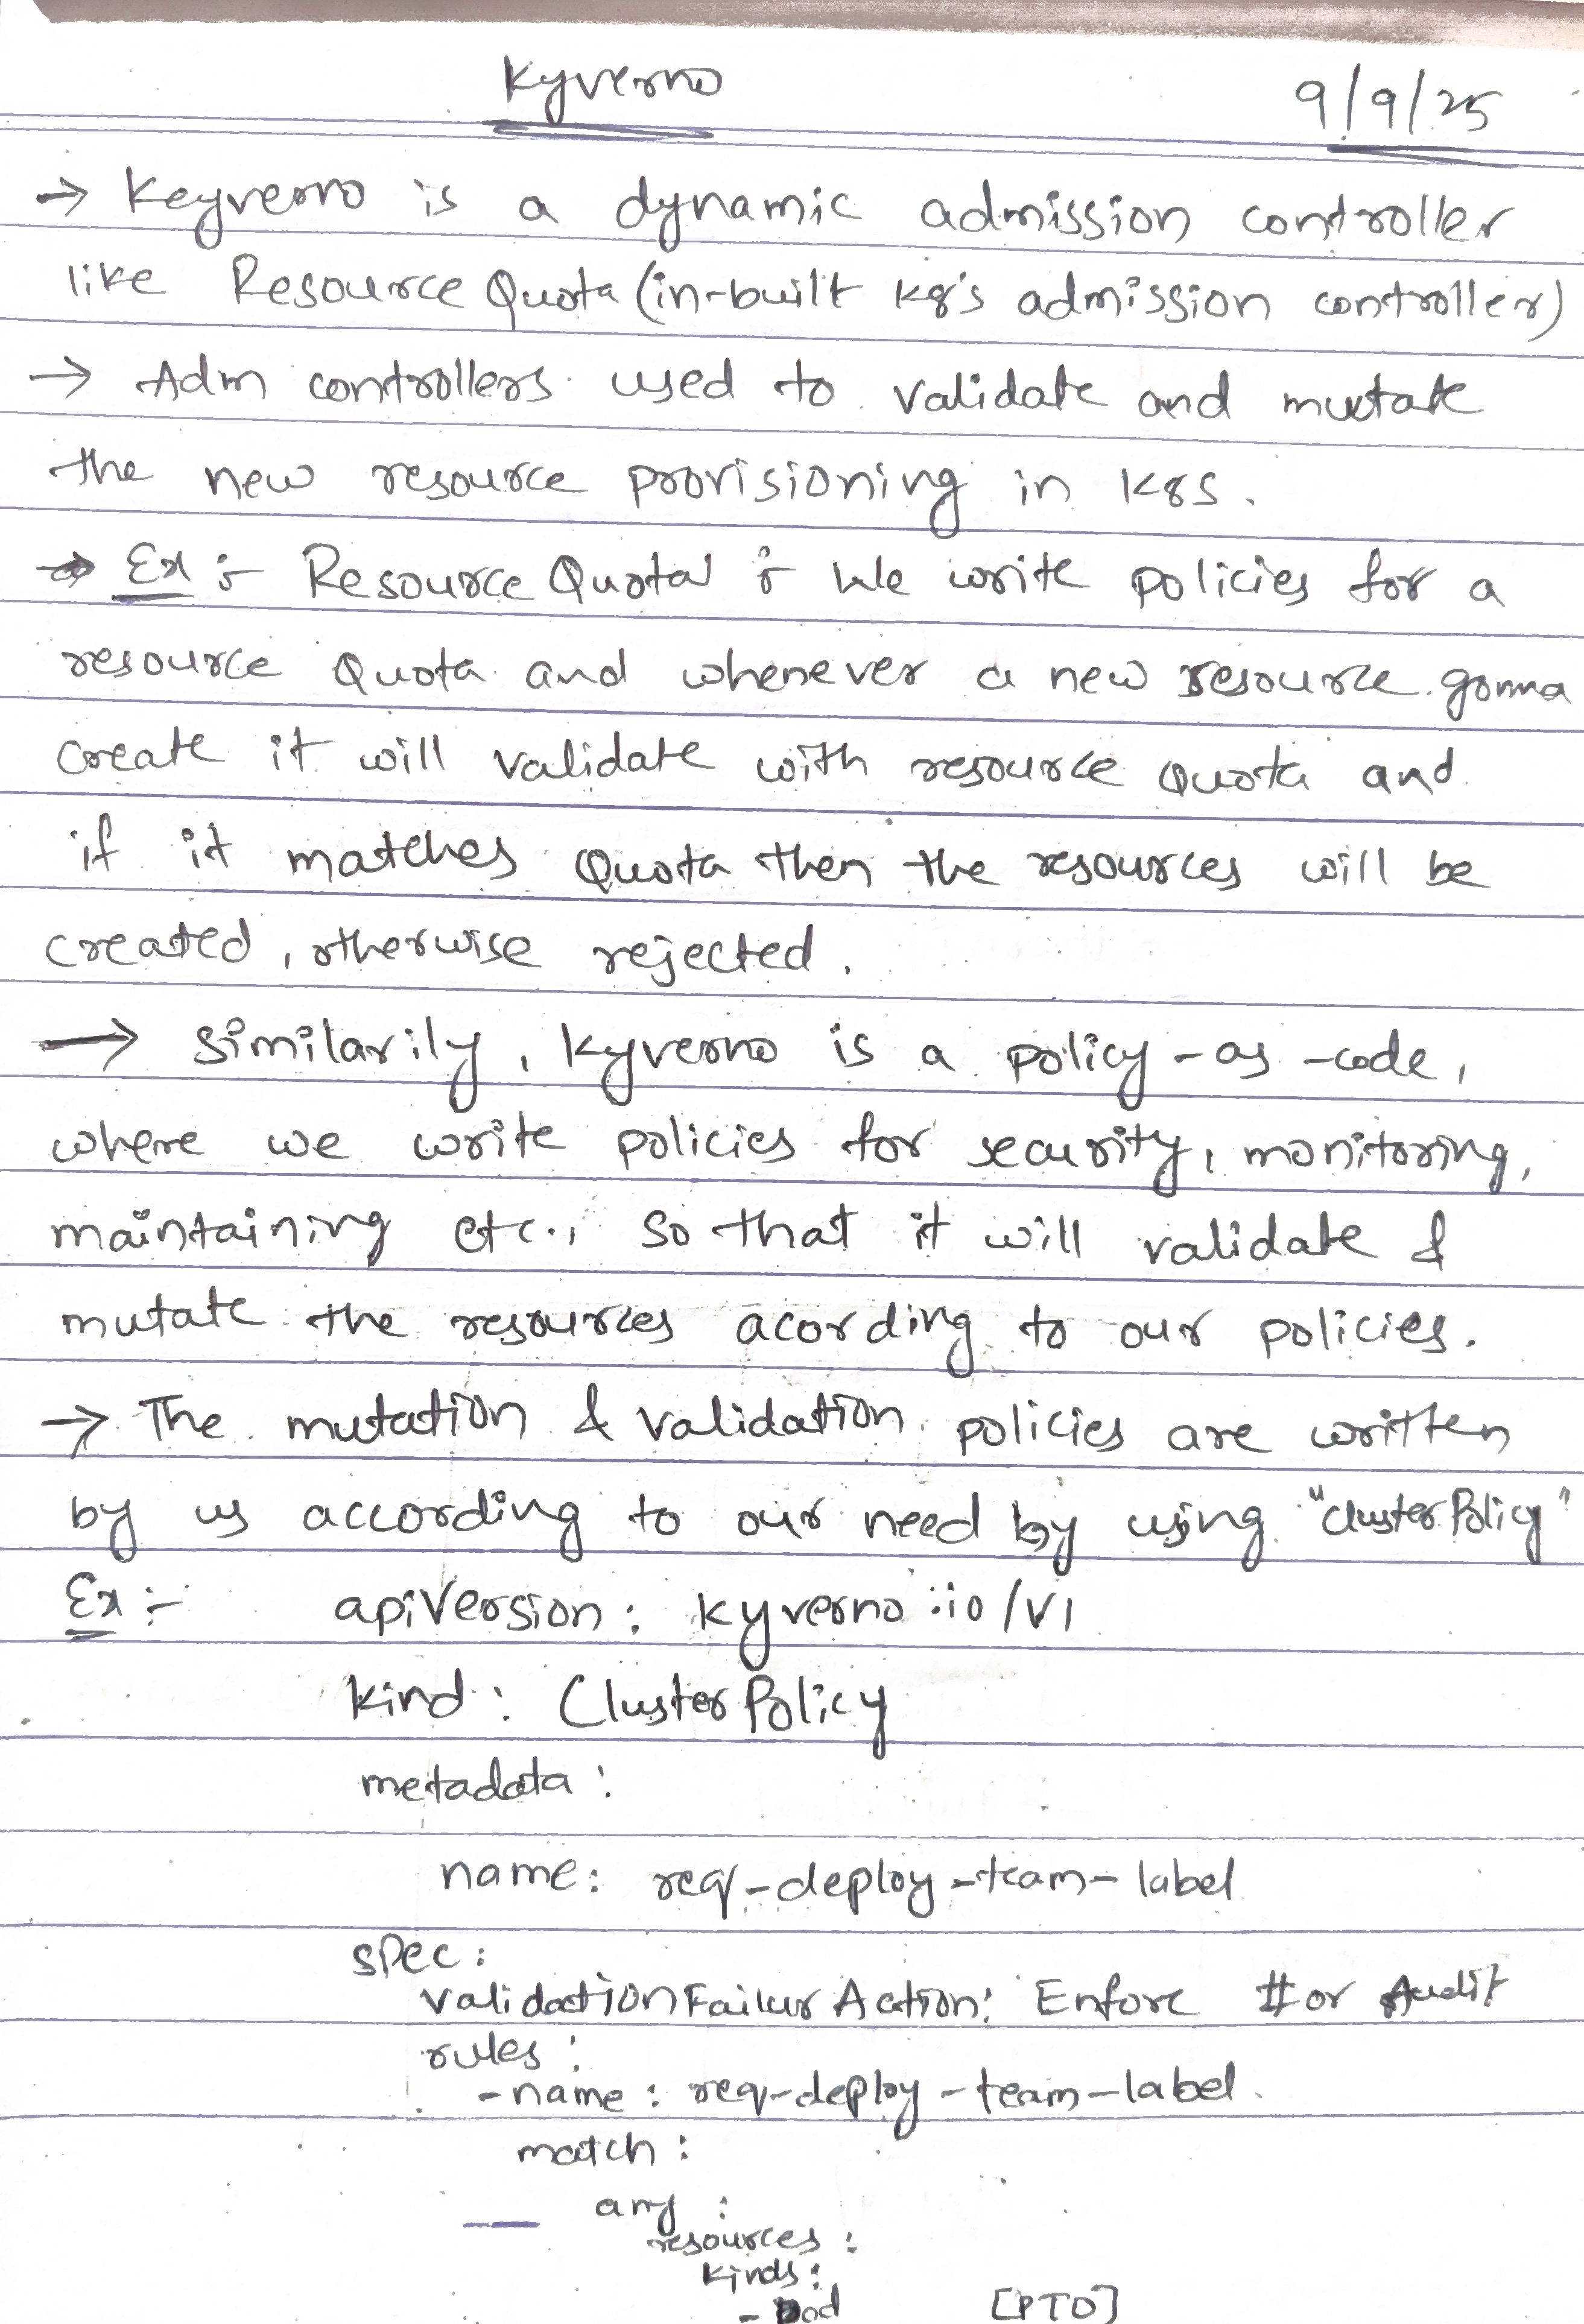 Kyverno
9/9/25
→ Keyverno is a dynamic admission controller
like Resource Quota (in-built K8's admission controller)
→ Adm controllers used to validate and mutate
the new resource provisioning in K8S.
→ Ex :- Resource Quota : We write policies for a
resource Quota and whenever a new resource gonna
create it will validate with resource quota and
if it matches Quota then the resources will be
created, otherwise rejected.
→ Similarily, Kyverno is a policy-as-code,
where we write policies for security, monitoring,
maintaining etc., so that it will validate &
mutate the resources acording to our policies.
→ The mutation & validation policies are written
by us according to our need by using "ClusterPolicy"
Ex :- apiVersion: kyverno.io/v1
kind: ClusterPolicy
metadata:
name: req-deploy-team-label
spec:
validationFailurAction: Enfore # or Audit
rules:
- name: req-deploy-team-label
match:
any:
resources:
kinds:
- Pod [PTO]